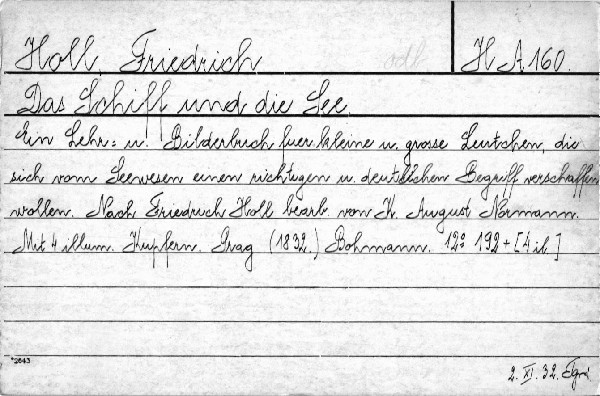 Holl, Friedrich odb. H A 160.
Das Schiff und die See
Ein Lehr= u. Bilderbuch fuer kleine u. grosse Leutchen, die
sich vom Seewesen einen richtigen u. deutlichen Begriff verschaffen
wollen. Nach Friedrich Holl bearb. von K. August Normann.
Mit 4 illum. Kupfern. Prag (1832.) Bohmann. 12° 192+[4 il.]
*2643
2. XI. 32.